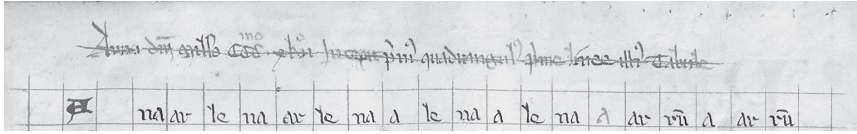 Anno dm̄ millo CCC mo xlvi Incepit pm quadrangul' pme linee illi' tabule
a na ar le na ar le na a le na a le na a ar rū a ar rū